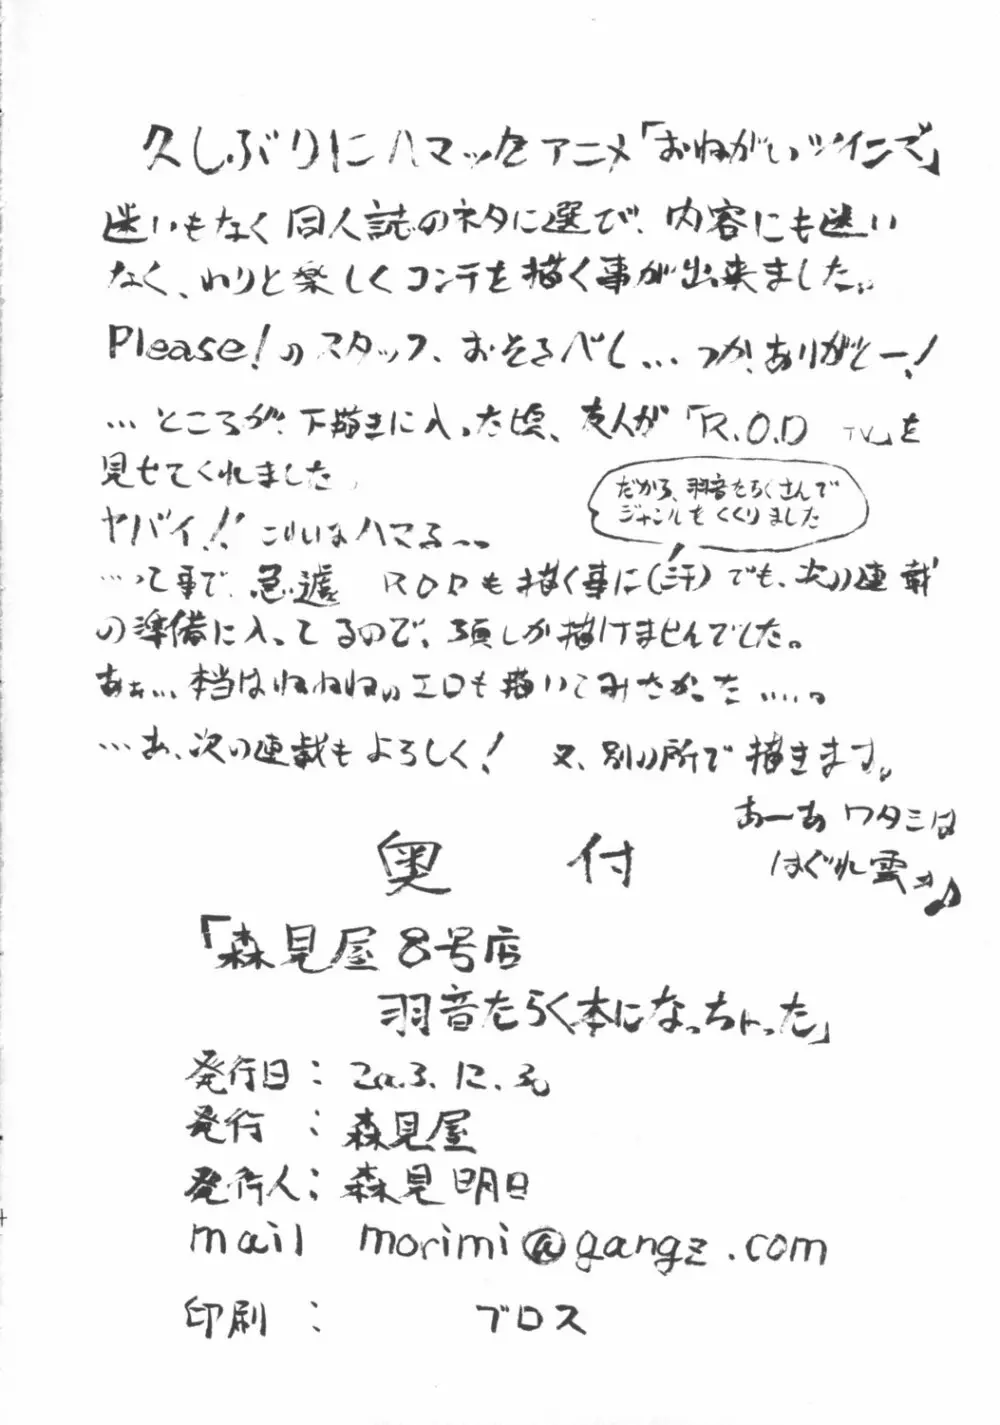 久しぶりにハマったアニメ「おねがいツインズ」
迷いもなく同人誌のネタに選び、内容にも迷い
なく、わりと楽しくコンテを描く事が出来ました。
Please!のスタッフ、おそるべし…つか、ありがとー!
…ところが、下描きに入った頃、友人が「R.O.D TV」を
見せてくれました。
だから、羽音たらくさんで
ジャンルをくくりました
ヤバイ!!こりはハマる〜。
…って事で、急遽 RODも描く事に(汗)でも、次の連載
の準備に入ってるので、3頁しか描けませんでした。
あぁ…本当はねねねのエロも描いてみたかった……。
…あ、次の連載もよろしく! 又、別の所で描きます。
あーあ ワタミは
はぐれ雲♪
奥付
「森見屋8号店
羽音たらく本になっちゃった」
発行日:2003.12.30
発行 :森見屋
発行人:森見明日
mail morimi@gangz.com
印刷 : ブロス